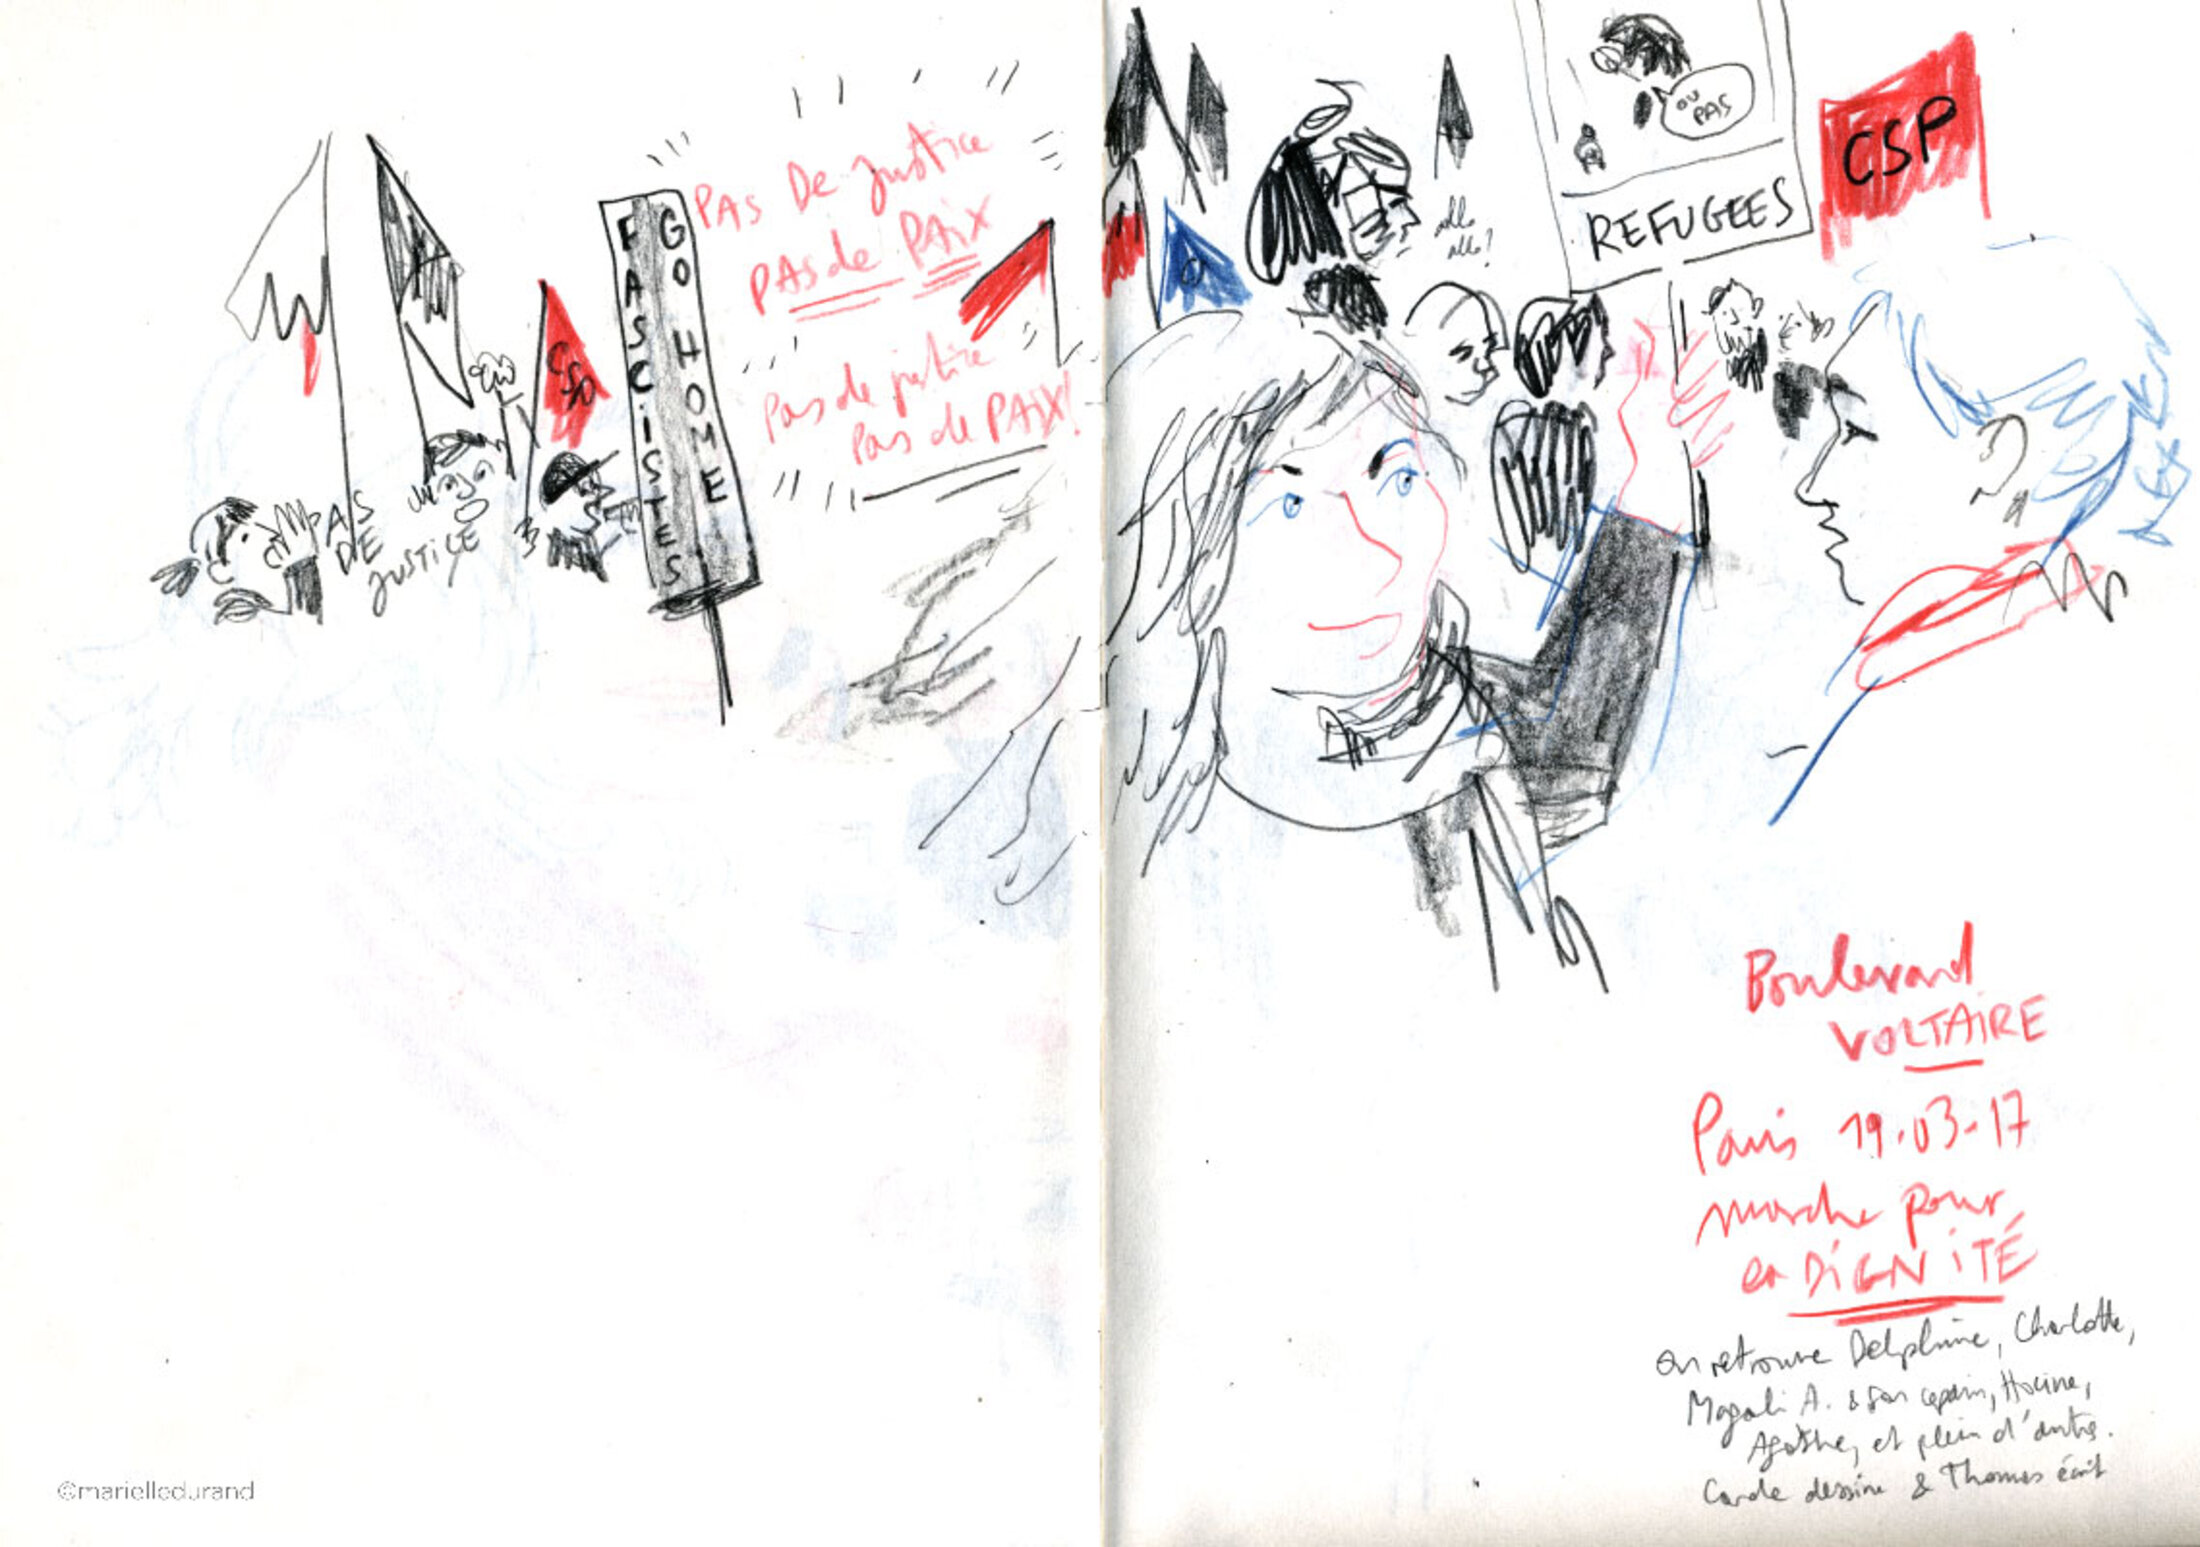 PAS De Justice
PAS de PAiX
Pas de justice
Pas de PAiX!
FASCiSTES
GO HOME
CSP
PAS
DE
JUSTiCE
allo
allo?
OU
PAS
REFUGEES
CSP
Boulevard
VOLTAiRE
Paris 19.03-17
marche pour
la DiGNiTÉ
On retrouve Delphine, Charlotte,
Magali A. & son copain, Hocine,
Agathe, et plein d'autres.
Carole dessine & Thomas écrit
©marielledurand